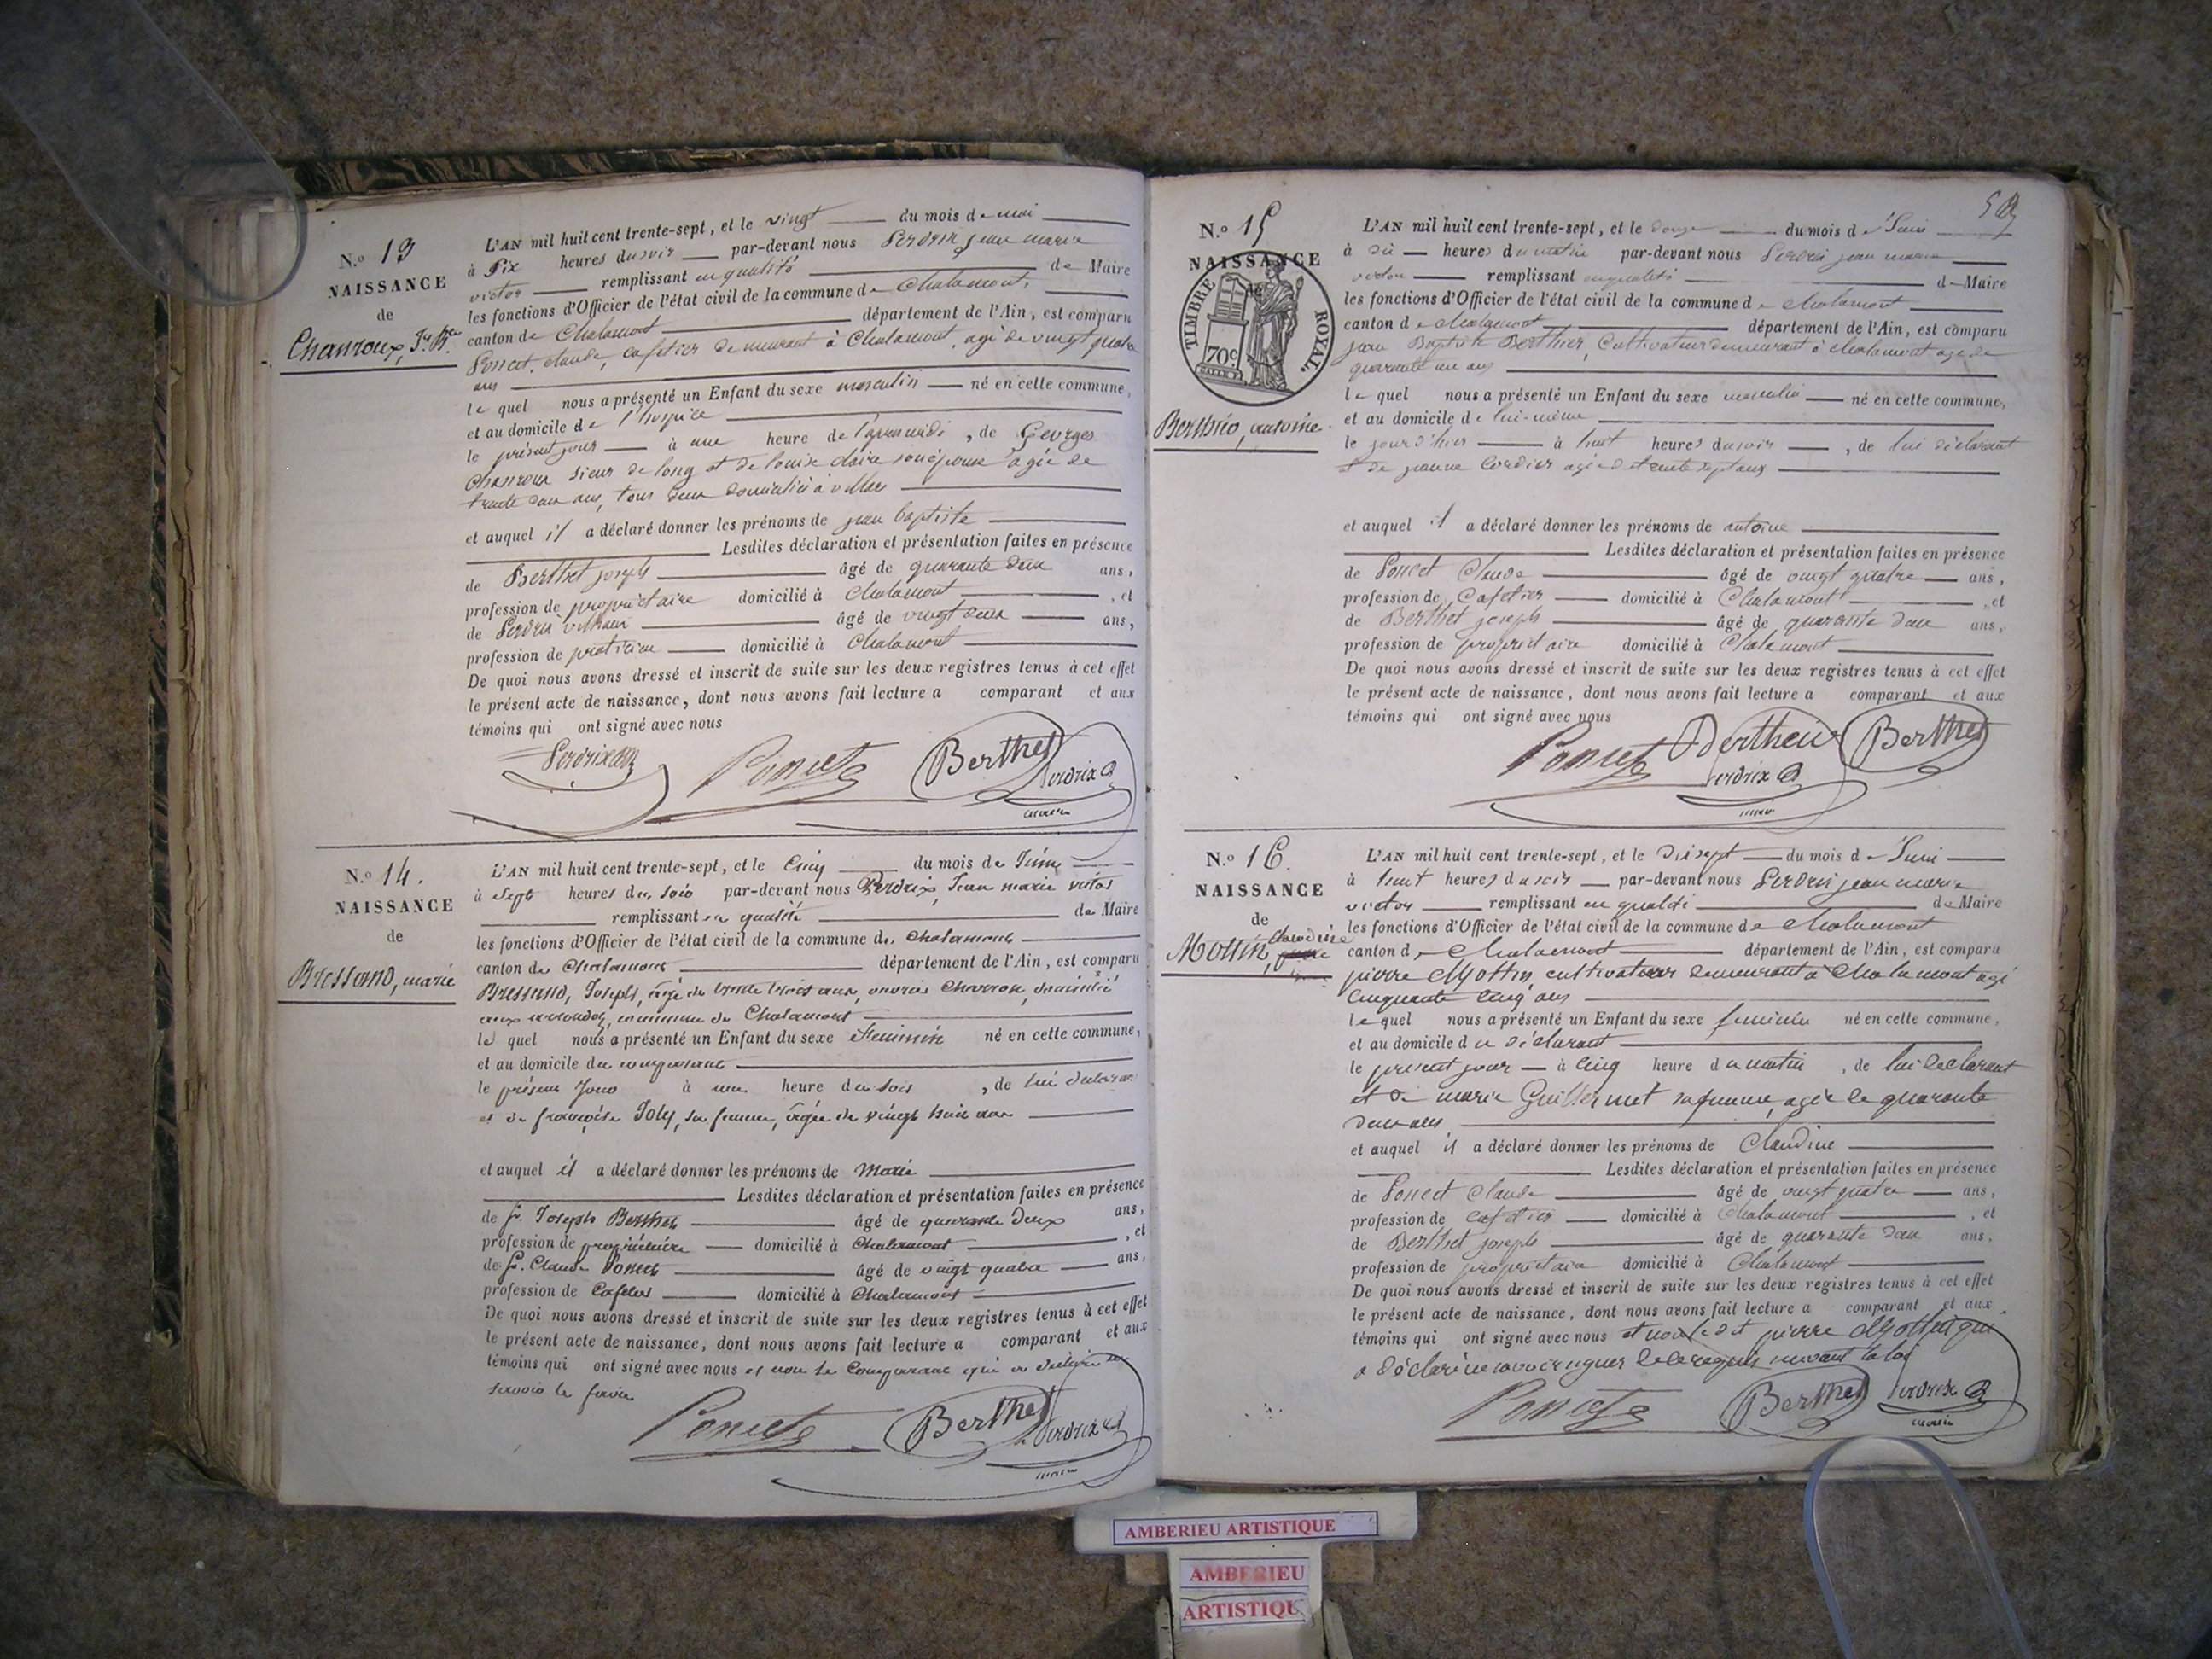 N.o 13
NAISSANCE
de
Chanroux, Jn Bte
L'AN mil huit cent trente-sept, et le vingt du mois de mai
à Six heures du soir par-devant nous Perdrix jean marie
victor remplissant en qualité de Maire
les fonctions d'Officier de l'état civil de la commune de Chalamont,
canton de Chalamont département de l'Ain, est comparu
Poncet, claude, cafetier demeurant à Chalamont, agé de vingt quatre
ans
le quel nous a présenté un Enfant du sexe masculin né en cette commune,
et au domicile de l'hospice
le présent jour à une heure de l'apremidi, de Georges
Chanroux sieur de long et de louise claire son épouse agée de
trente deux ans, tous deux domiciliés à villars
et auquel il a déclaré donner les prénoms de jean baptiste
Lesdites déclaration et présentation faites en présence
de Berthet joseph âgé de quarante deux ans,
profession de propriétaire domicilié à Chalamont, et
de Perdrix âgé de vingt deux ans,
profession de praticien domicilié à Chalamont
De quoi nous avons dressé et inscrit de suite sur les deux registres tenus à cet effet
le présent acte de naissance, dont nous avons fait lecture a comparant et aux
témoins qui ont signé avec nous
Perdrix Poncet Berthet Perdrix
maire
N.o 14.
NAISSANCE
de
Bressand, marie
L'AN mil huit cent trente-sept, et le Cinq du mois de Juin
à Sept heures du soir par-devant nous Perdrix, Jean marie victor
remplissant en qualité de Maire
les fonctions d'Officier de l'état civil de la commune de Chalamont
canton de Chalamont département de l'Ain, est comparu
Bressand, Joseph, âgé de trente trois ans, ouvrier Charron, domicilié
aux commune de Chalamont
le quel nous a présenté un Enfant du sexe Féminin né en cette commune,
et au domicile du comparant
le présent Jour à une heure du soir, de lui déclarant
et de françoise Joly, sa femme, âgée de vingt huit ans
et auquel il a déclaré donner les prénoms de Marie
Lesdites déclaration et présentation faites en présence
de Sr. Joseph Berthet âgé de quarante deux ans,
profession de propriétaire domicilié à Chalamont, et
de Sr. Claude Poncet âgé de vingt quatre ans,
profession de Cafetier domicilié à Chalamont
De quoi nous avons dressé et inscrit de suite sur les deux registres tenus à cet effet
le présent acte de naissance, dont nous avons fait lecture a comparant et aux
témoins qui ont signé avec nous et non le Comparant qui a déclaré ne
savoir le faire
Poncet Berthet Perdrix
maire
N.o 15
NAISSANCE
TIMBRE ROYAL.
70c
Berthier, antoine
L'AN mil huit cent trente-sept, et le douze du mois de Juin
à dix heures du matin par-devant nous Perdrix jean marie
victor remplissant en qualité de Maire
les fonctions d'Officier de l'état civil de la commune de Chalamont
canton de Chalamont département de l'Ain, est comparu
jean Baptiste Berthier, Cultivateur demeurant à chalamont agé de
quarante un ans
le quel nous a présenté un Enfant du sexe masculin né en cette commune,
et au domicile de lui-même
le jour d'hier à huit heures du soir, de lui déclarant
et de jeanne Cordier agée de trente sept ans
et auquel il a déclaré donner les prénoms de antoine
Lesdites déclaration et présentation faites en présence
de Poncet Claude âgé de vingt quatre ans,
profession de Cafetier domicilié à Chalamont, et
de Berthet joseph âgé de quarante deux ans,
profession de propriétaire domicilié à Chalamont
De quoi nous avons dressé et inscrit de suite sur les deux registres tenus à cet effet
le présent acte de naissance, dont nous avons fait lecture a comparant et aux
témoins qui ont signé avec nous
Poncet Bertheir Berthet
Perdrix
maire
N.o 16.
NAISSANCE
de
Mottin, Claudine
L'AN mil huit cent trente-sept, et le Dix sept du mois de Juin
à huit heures du soir par-devant nous Perdrix jean marie
victor remplissant en qualité de Maire
les fonctions d'Officier de l'état civil de la commune de Chalamont
canton de Chalamont département de l'Ain, est comparu
pierre Mottin, cultivateur demeurant à Chalamont agé
Cinquante Cinq ans
le quel nous a présenté un Enfant du sexe feminin né en cette commune,
et au domicile du déclarant
le présent jour à Cinq heure du matin, de lui declarant
et de marie Guillermet sa femme, agée de quarante
deux ans
et auquel il a déclaré donner les prénoms de Claudine
Lesdites déclaration et présentation faites en présence
de Poncet Claude âgé de vingt quatre ans,
profession de Cafetier domicilié à Chalamont, et
de Berthet joseph âgé de quarante deux ans,
profession de propriétaire domicilié à Chalamont
De quoi nous avons dressé et inscrit de suite sur les deux registres tenus à cet effet
le présent acte de naissance, dont nous avons fait lecture a comparant et aux
témoins qui ont signé avec nous et non ledit pierre Mottin qui
a déclaré ne savoir signer de ce requis suivant la loi
Poncet Berthet Perdrix
maire
AMBERIEU ARTISTIQUE
AMBERIEU
ARTISTIQUE